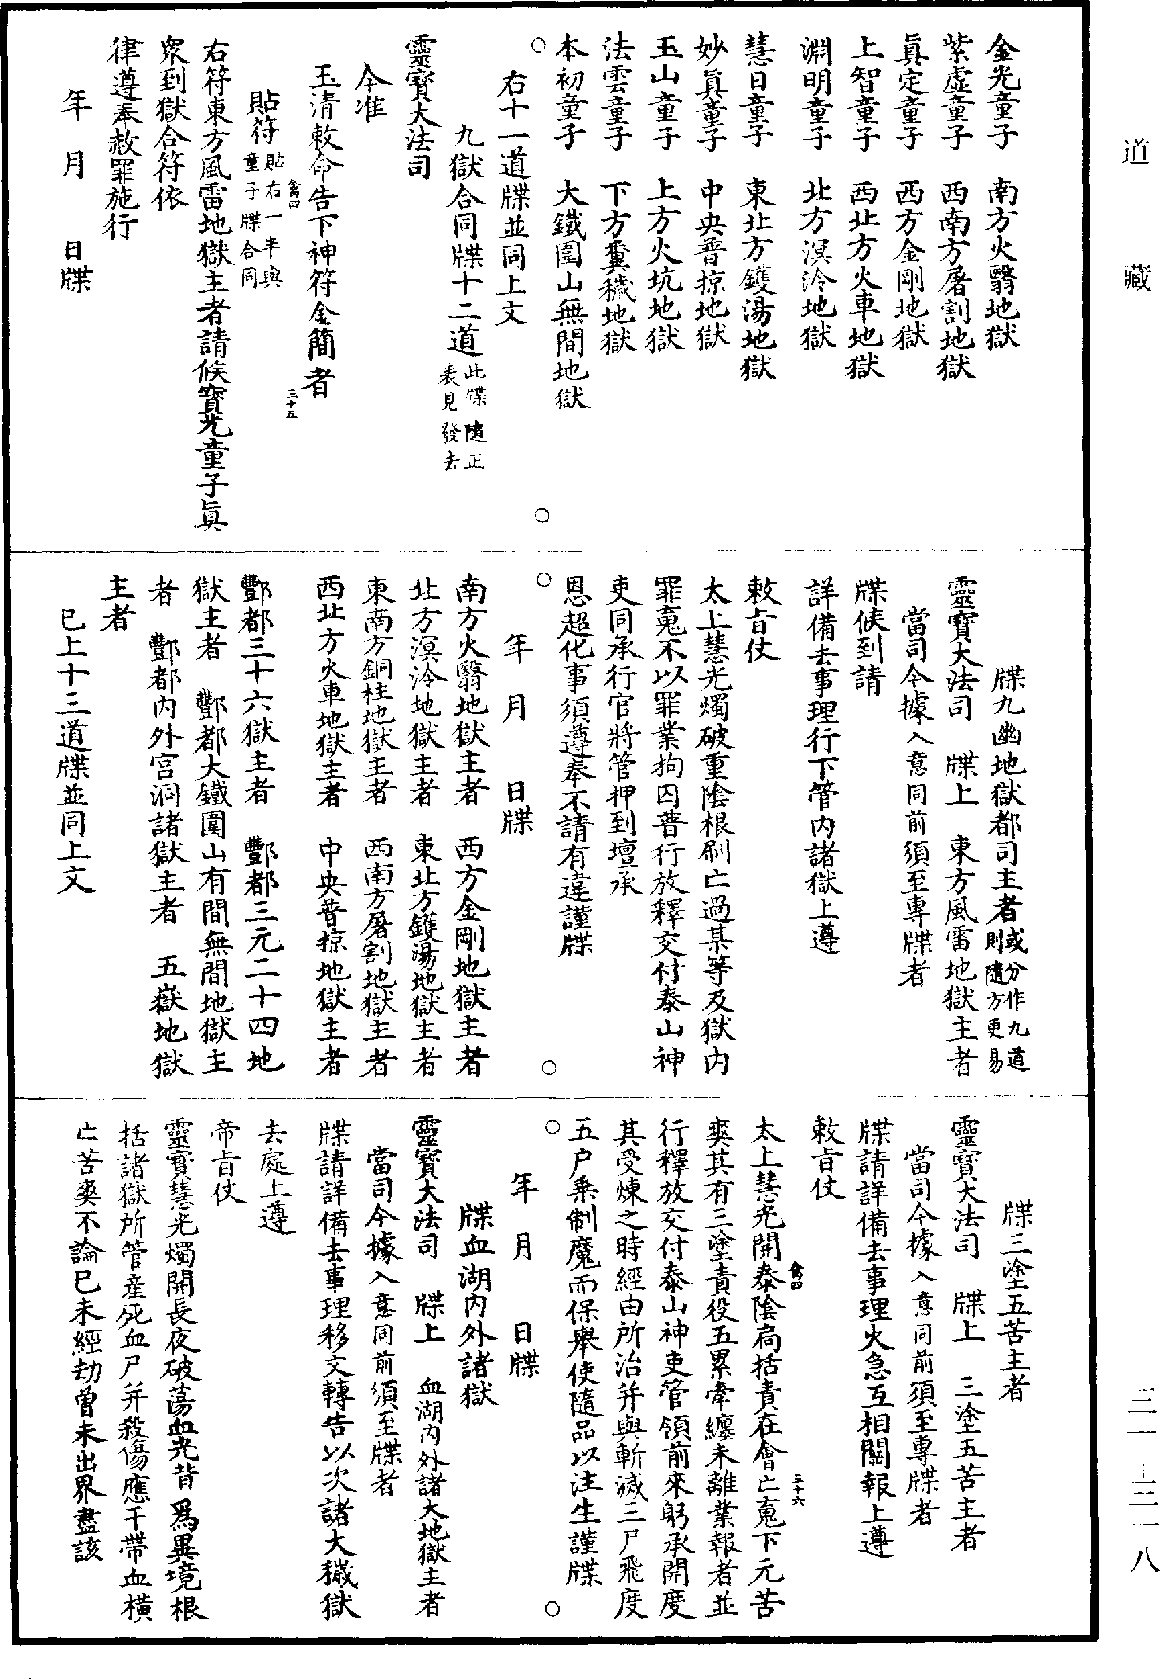 金光童子　南方火翳地獄
紫虛童子　西南方屠割地獄
眞定童子　西方金剛地獄
上智童子　西北方火車地獄
淵明童子　北方溟泠地獄
慧日童子　東北方鑊湯地獄
妙眞童子　中央普掠地獄
玉山童子　上方火坑地獄
法雲童子　下方糞穢地獄
本初童子　大鐵圍山無間地獄
右十一道牒並同上文
九獄合同牒十二道此牒隨正表見發去
靈寶大法司
今准
玉清敕命告下神符金簡者
貼符貼右一半與童子牒合同
右符東方風雷地獄主者請候寶光童子眞
衆到獄合符依
律遵奉赦罪施行
年　月　日牒
牒九幽地獄都司主者或分作九道則隨方更易
靈寶大法司　牒上　東方風雷地獄主者
當司今據入意同前須至專牒者
牒候到請
詳備去事理行下管内諸獄上遵
敕旨仗
太上慧光燭破重陰根刷亡過某等及獄内
罪䰟不以罪業拘囚普行放釋交付泰山神
吏同承行官將管押到壇承
恩超化事須遵奉不請有違謹牒
年　月　日牒
南方火翳地獄主者　西方金剛地獄主者
北方溟泠地獄主者　東北方鑊湯地獄主者
東南方銅柱地獄主者　西南方屠割地獄主者
西北方火車地獄主者　中央普掠地獄主者
酆都三十六獄主者　酆都三元二十四地
獄主者　酆都大鐵圍山有間無間地獄主
者　酆都内外宮洞諸獄主者　五嶽地獄
主者
已上十三道牒並同上文
牒三塗五苦主者
靈寶大法司　牒上　三塗五苦主者
當司今據入意同前須至專牒者
牒請詳備去事理火急互相關報上遵
敕旨仗
太上慧光開泰陰局括責在會亡䰟下元苦
爽其有三塗責役五累牽纏未離業報者並
行釋放交付泰山神吏管領前來躬承開度
其受煉之時經由所治并與斬滅三尸飛度
五戶乘制魔而保舉使隨品以注生謹牒
年　月　日牒
牒血湖内外諸獄
靈寶大法司　牒上　血湖内外諸大地獄主者
當司今據入意同前須至牒者
牒請詳備去事理移文轉告以次諸大穢獄
去處上遵
帝旨仗
靈寶慧光燭開長夜破蕩血光皆爲異境根
括諸獄所管産死血尸并殺傷應干帶血橫
亡苦爽不論已未經劫曾未出界盡該
道
藏
三一—三二八
三十五
三十六